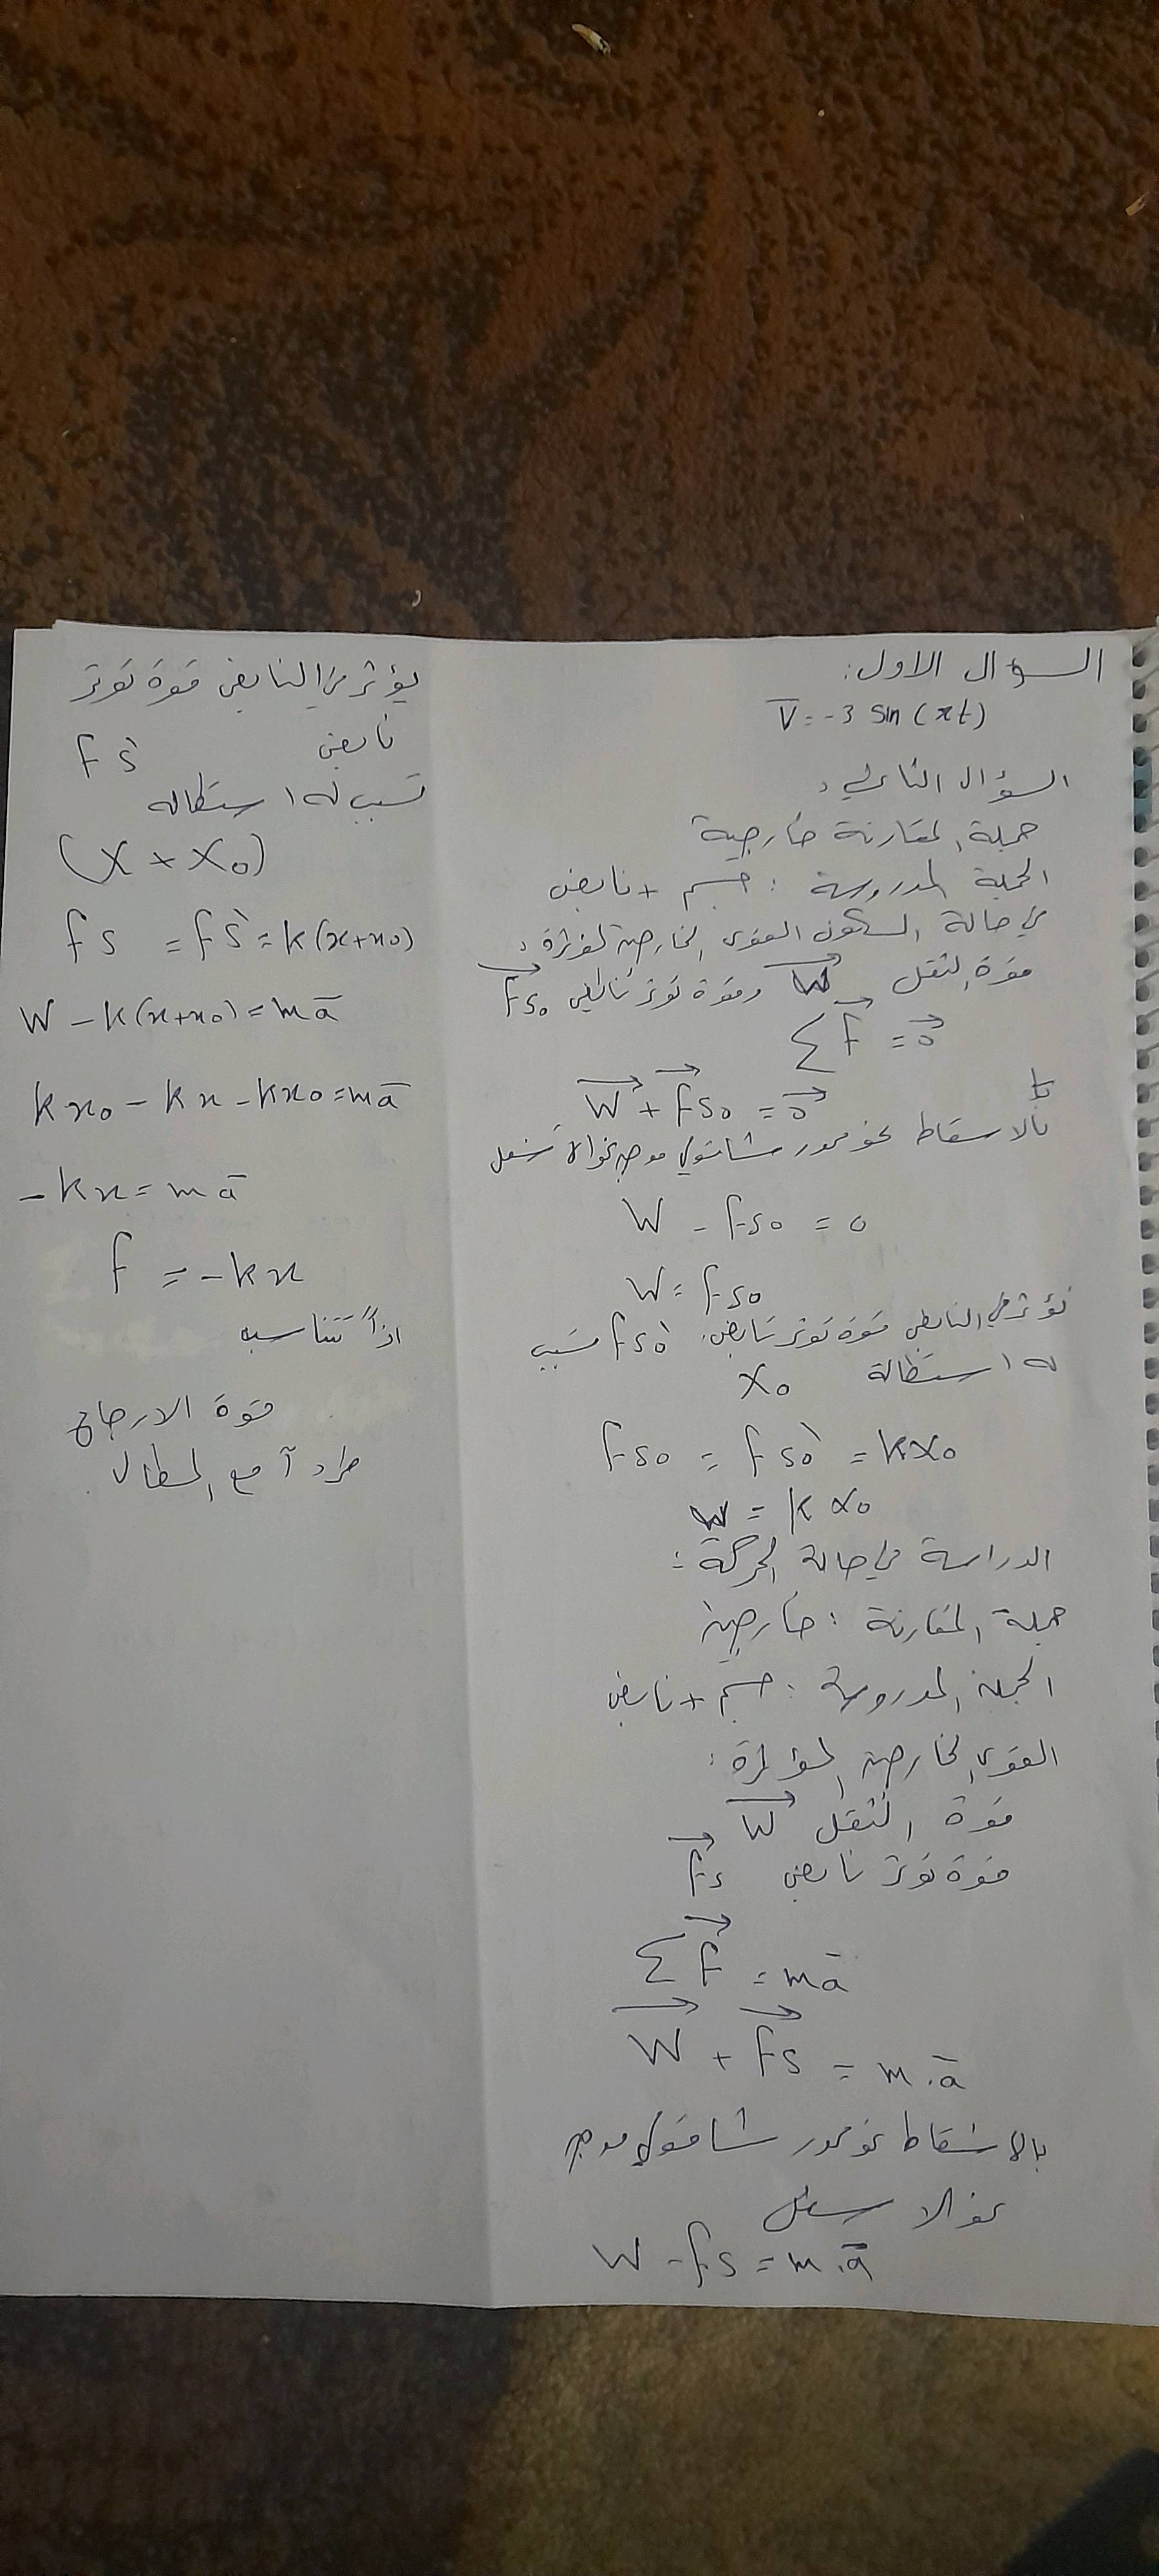 السؤال الاول:
V̅ = -3 sin (xt)
السؤال الثاني:
جملة المقارنة خارجية
الجملة المدروسة : جسم + نابض
في حالة السكون القوى الخارجية المؤثرة :
قوة الثقل W⃗ وقوة توتر نابض Fs₀⃗
ΣF⃗ = 0⃗
W⃗ + Fs₀⃗ = 0⃗
بالاسقاط نحو محور شاقولي موجه نحو الاسفل
W - Fs₀ = 0
W = Fs₀
تؤثر في النابض قوة توتر نابض Fs₀` تسبب
له استطالة X₀
Fs₀ = Fs₀` = kX₀
W = kX₀
الدراسة في حالة الحركة :
جملة المقارنة : خارجية
الجملة المدروسة : جسم + نابض
القوى الخارجية المؤثرة :
قوة الثقل W⃗
قوة توتر نابض Fs⃗
ΣF⃗ = ma̅
W⃗ + Fs⃗ = m.a̅
بالاسقاط نحو محور شاقولي موجه
نحو الاسفل
W - Fs = m.a̅
يؤثر في النابض قوة توتر
نابض Fs`
تسبب له استطالة
(X + X₀)
Fs = Fs` = k(x+x₀)
W - k(x+x₀) = ma̅
kx₀ - kx - kx₀ = ma̅
-kx = ma̅
F = -kx
اذاً تتناسب
قوة الارجاع
طرداً مع المطال